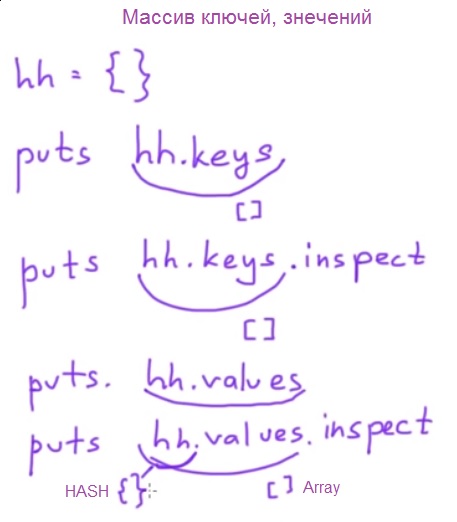 Массив ключей, знечений
hh = {}
puts hh.keys
[]
puts hh.keys.inspect
[]
puts. hh.values
puts hh.values.inspect
HASH {} [] Array